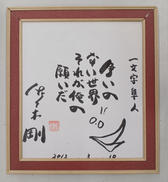 一文字隼人
争いの
ない世界
それが俺の
願いだ
佐々木剛
2012 3 10